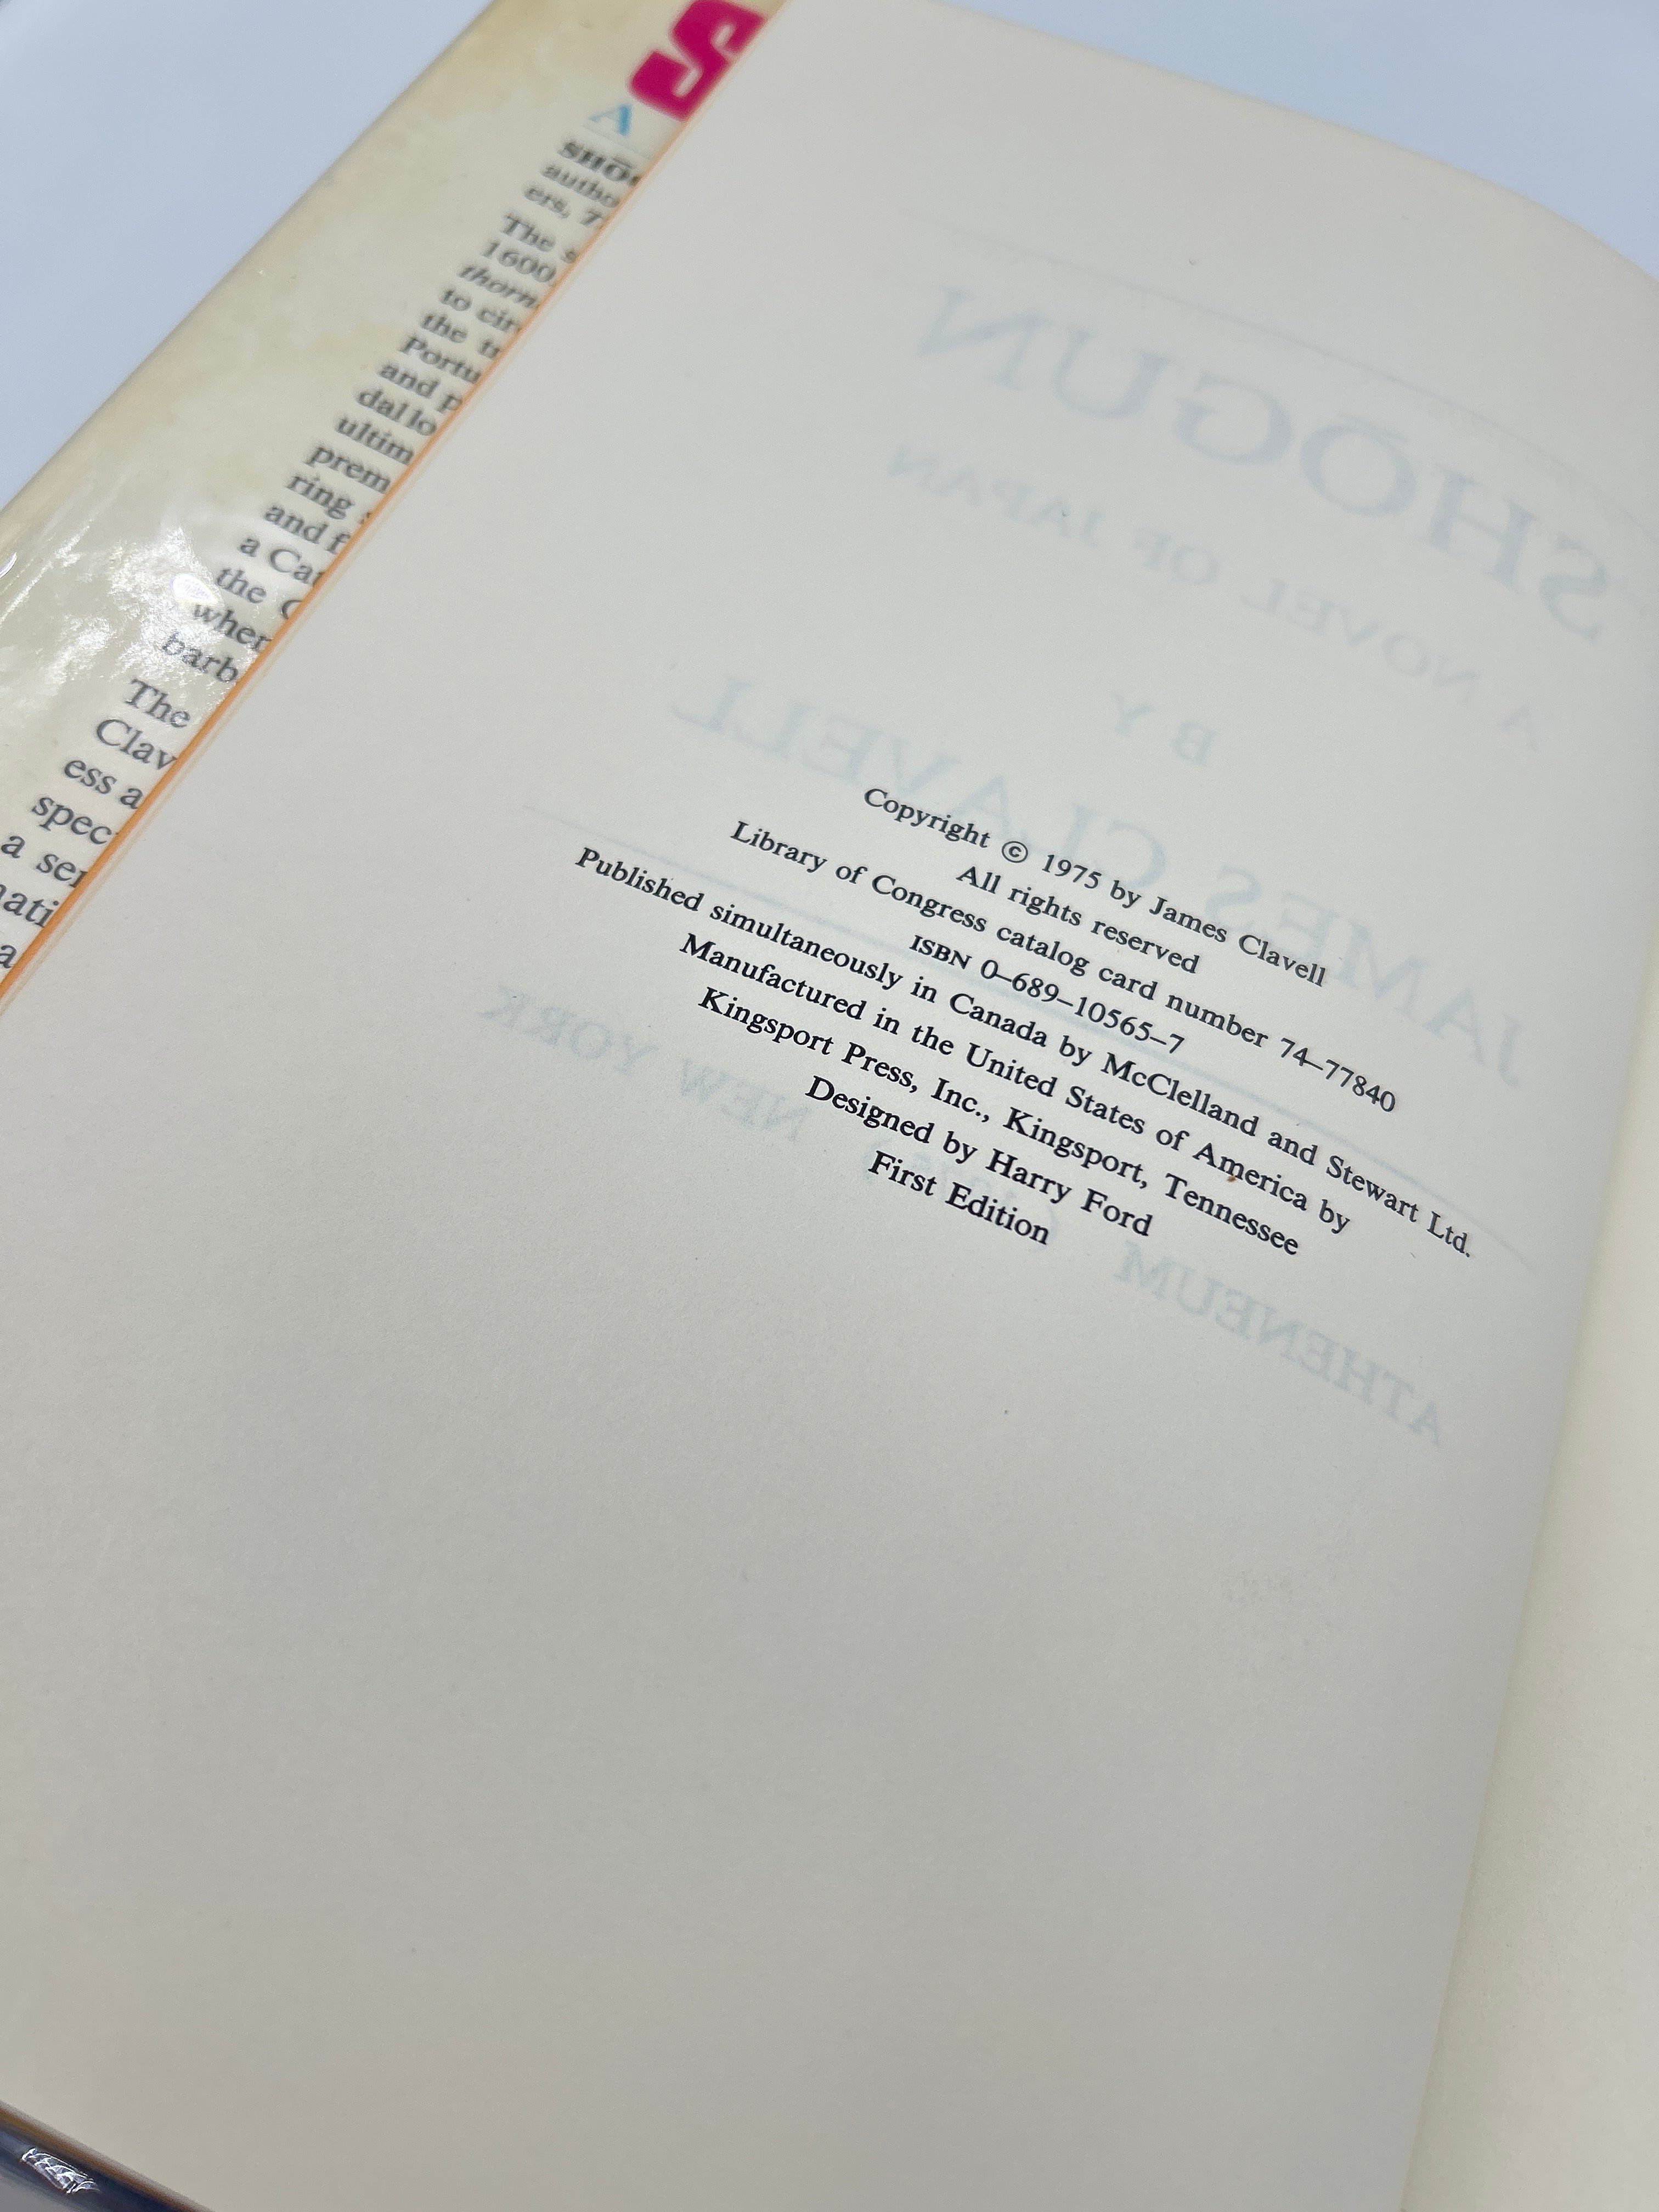 A
SHŌ
autho
ers,
The
1600
thorn
to cir
the tr
Portu
and p
dallo
ultim
prem
ring
and f
a Cat
the
wher
barb
The
Clav
ess a
spec
a ser
nati
a
SHŌGUN
A NOVEL OF JAPAN
BY
JAMES CLAVELL
ATHENEUM NEW YORK
Copyright © 1975 by James Clavell
All rights reserved
Library of Congress catalog card number 74–77840
ISBN 0–689–10565–7
Published simultaneously in Canada by McClelland and Stewart Ltd.
Manufactured in the United States of America by
Kingsport Press, Inc., Kingsport, Tennessee
Designed by Harry Ford
First Edition